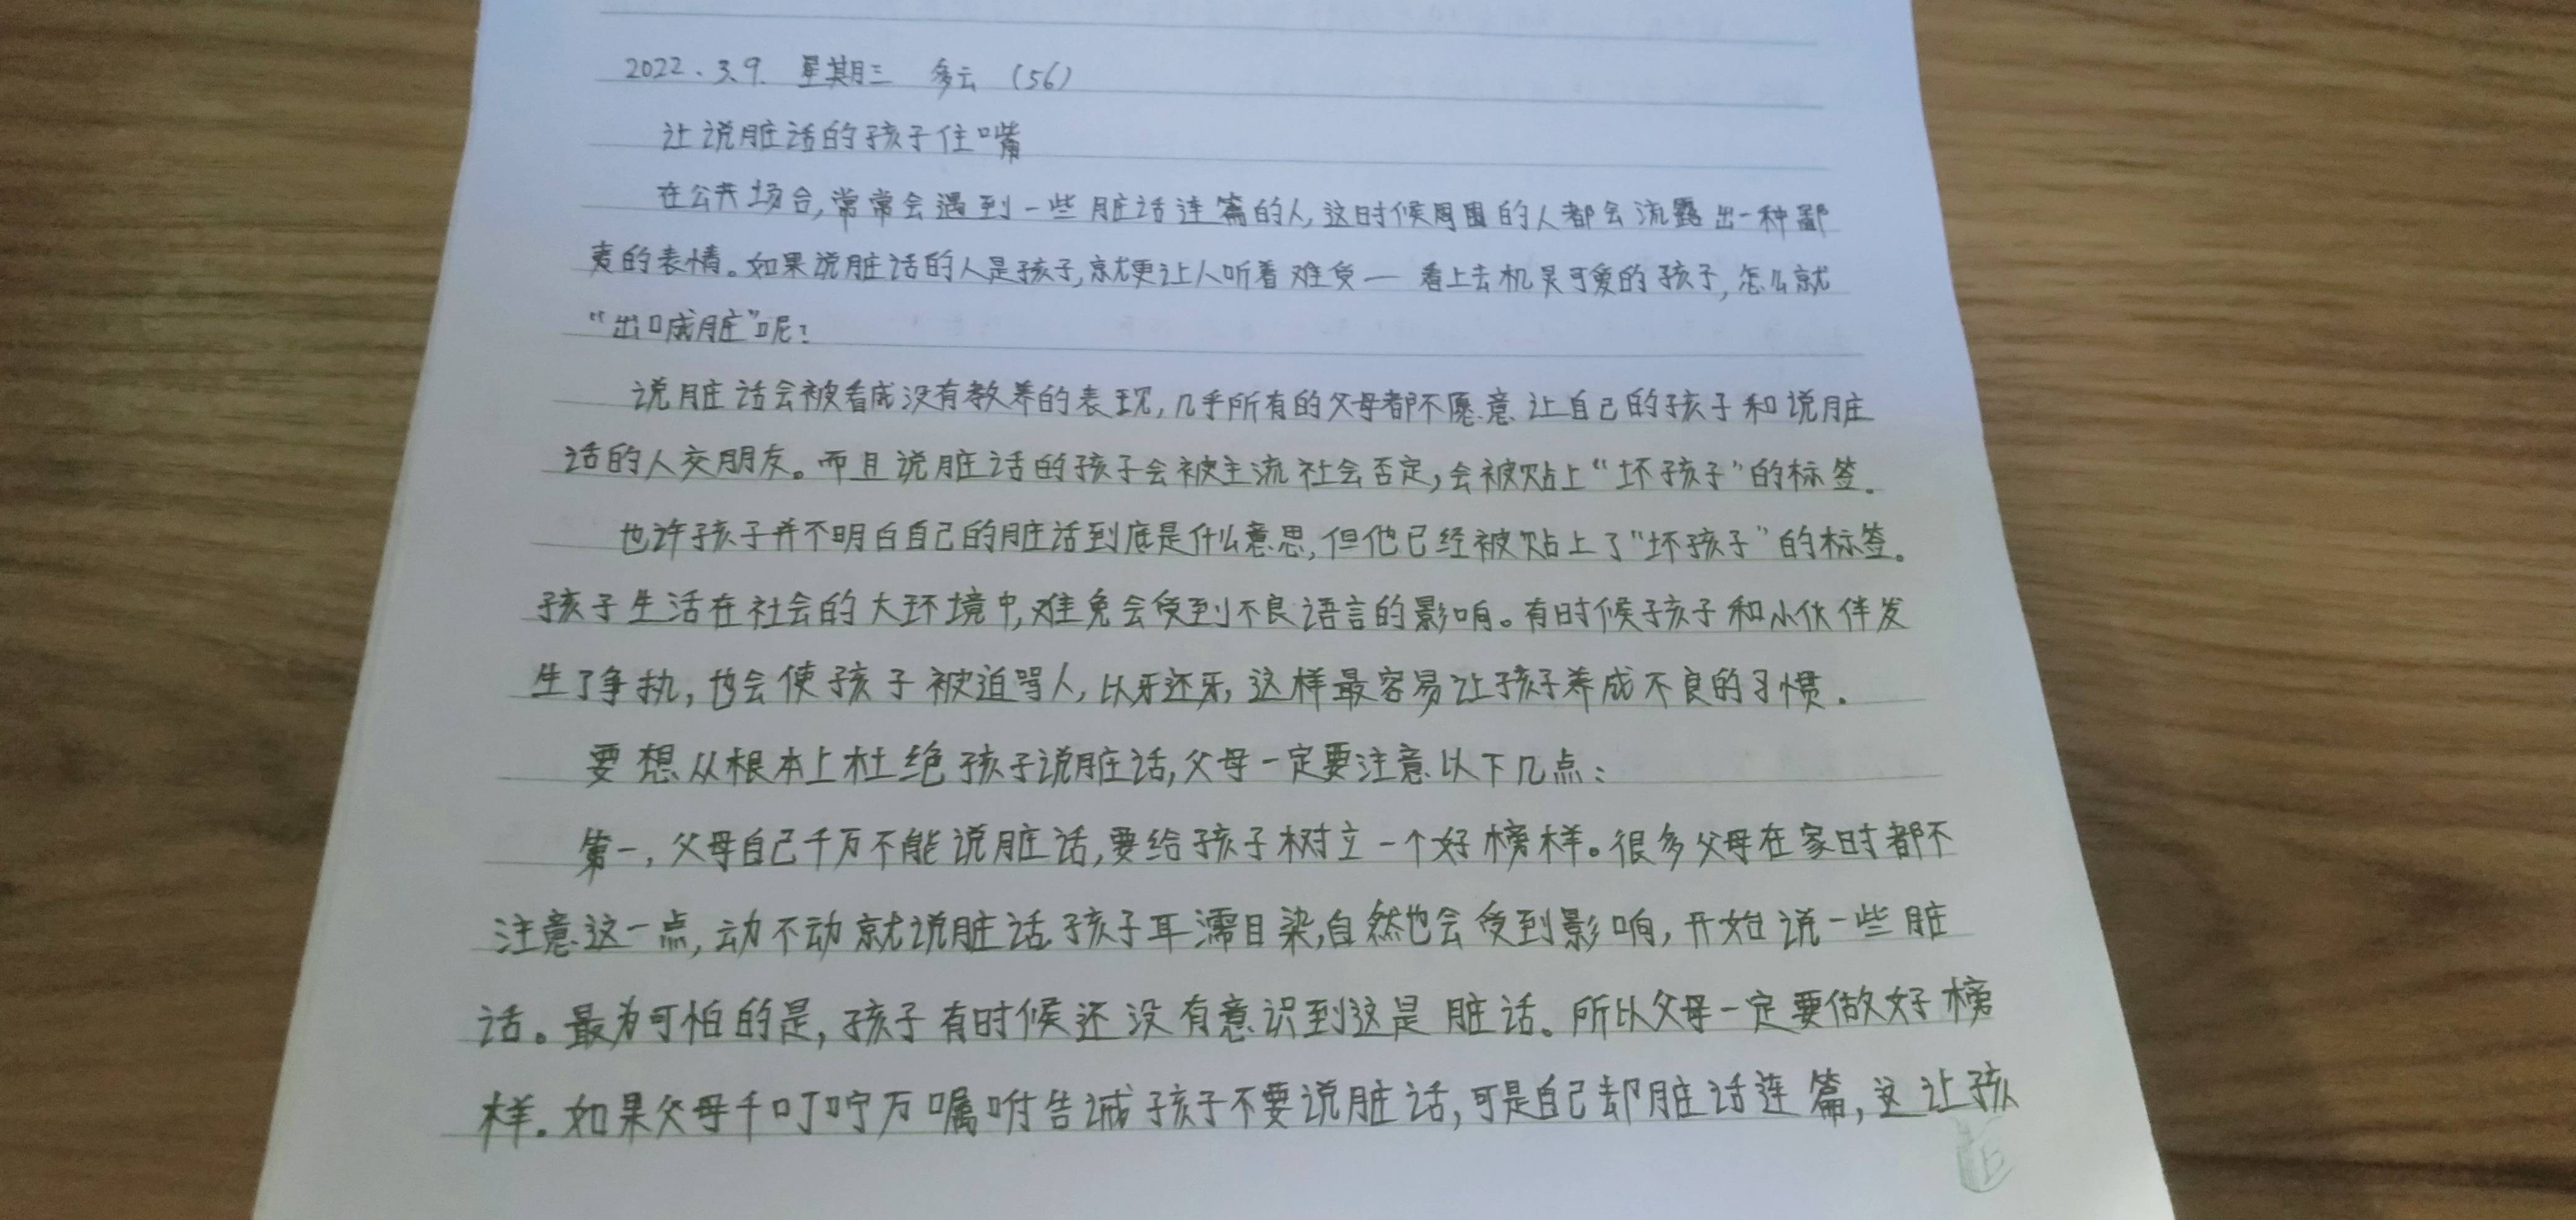 2022.3.9. 星期三 多云 (56)
让说脏话的孩子住嘴
在公共场合,常常会遇到一些脏话连篇的人,这时候周围的人都会流露出一种鄙
夷的表情。如果说脏话的人是孩子,就更让人听着难受一 看上去机灵可爱的孩子,怎么就
“出口成脏”呢?
说脏话会被看成没有教养的表现,几乎所有的父母都不愿意让自己的孩子和说脏
话的人交朋友。而且说脏话的孩子会被主流社会否定,会被贴上“坏孩子”的标签.
也许孩子并不明白自己的脏话到底是什么意思,但他已经被贴上了“坏孩子”的标签。
孩子生活在社会的大环境中,难免会受到不良语言的影响。有时候孩子和小伙伴发
生了争执,也会使孩子被迫骂人,以牙还牙,这样最容易让孩子养成不良的习惯.
要想从根本上杜绝孩子说脏话,父母一定要注意以下几点:
第一,父母自己千万不能说脏话,要给孩子树立一个好榜样。很多父母在家时都不
注意这一点,动不动就说脏话.孩子耳濡目染,自然也会受到影响,开始说一些脏
话。最为可怕的是,孩子有时候还没有意识到这是脏话。所以父母一定要做好榜
样.如果父母千叮咛万嘱咐告诫孩子不要说脏话,可是自己却脏话连篇,这让孩